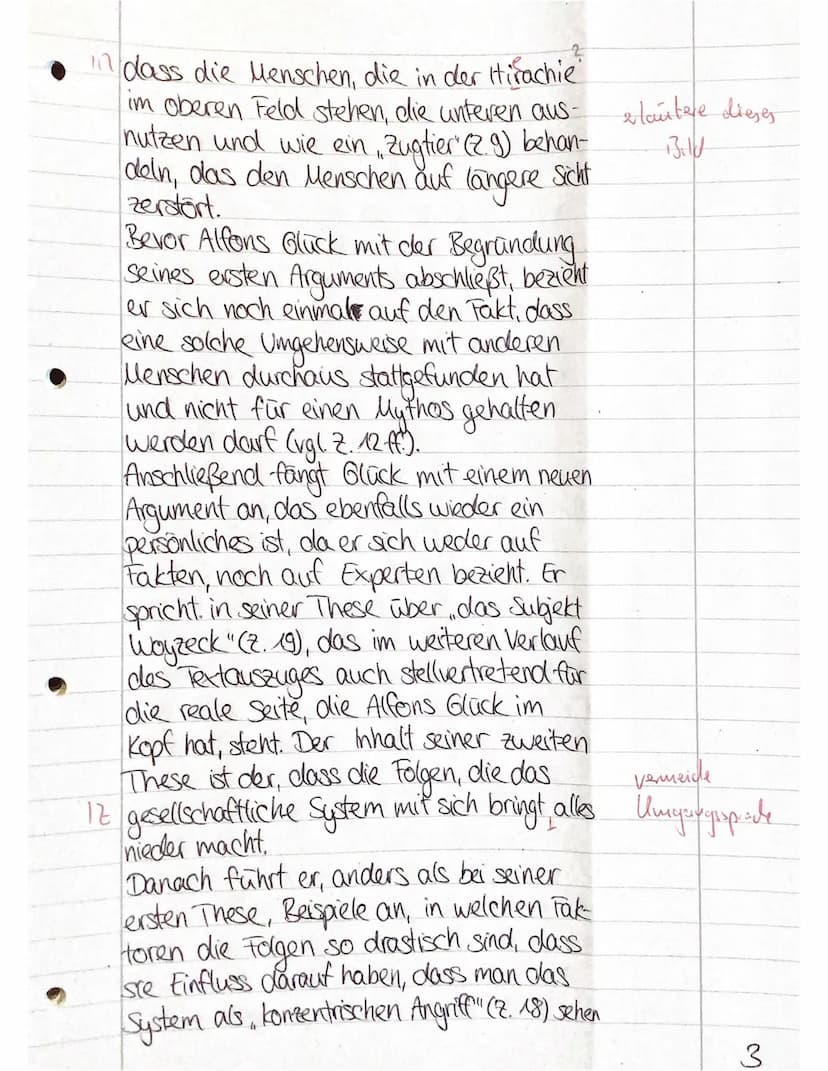 dass die Menschen, die in der Hirachie ?
im oberen Feld stehen, die unteren aus-
nutzen und wie ein „Zugtier" (Z. 9) behan-
deln, das den Menschen auf längere Sicht
zerstört.
Bevor Alfons Glück mit der Begründung
seines ersten Arguments abschließt, bezieht
er sich noch einmal auf den Fakt, dass
eine solche Umgehensweise mit anderen
Menschen durchaus stattgefunden hat
und nicht für einen Mythos gehalten
werden darf (vgl. Z. 12 ff.).
Anschließend fängt Glück mit einem neuen
Argument an, das ebenfalls wieder ein
persönliches ist, da er sich weder auf
Fakten, noch auf Experten bezieht. Er
spricht in seiner These über „das Subjekt
Woyzeck" (Z. 19), das im weiteren Verlauf
des Textauszuges auch stellvertretend für
die reale Seite, die Alfons Glück im
Kopf hat, steht. Der Inhalt seiner zweiten
These ist der, dass die Folgen, die das
gesellschaftliche System mit sich bringt, alles
nieder macht.
Danach führt er, anders als bei seiner
ersten These, Beispiele an, in welchen Fak-
toren die Folgen so drastisch sind, dass
sie Einfluss darauf haben, dass man das
System als „konzentrischen Angriff" (Z. 18) sehen
erläutere dieses
Bild
vermeide
Umgangssprache
1Z
3